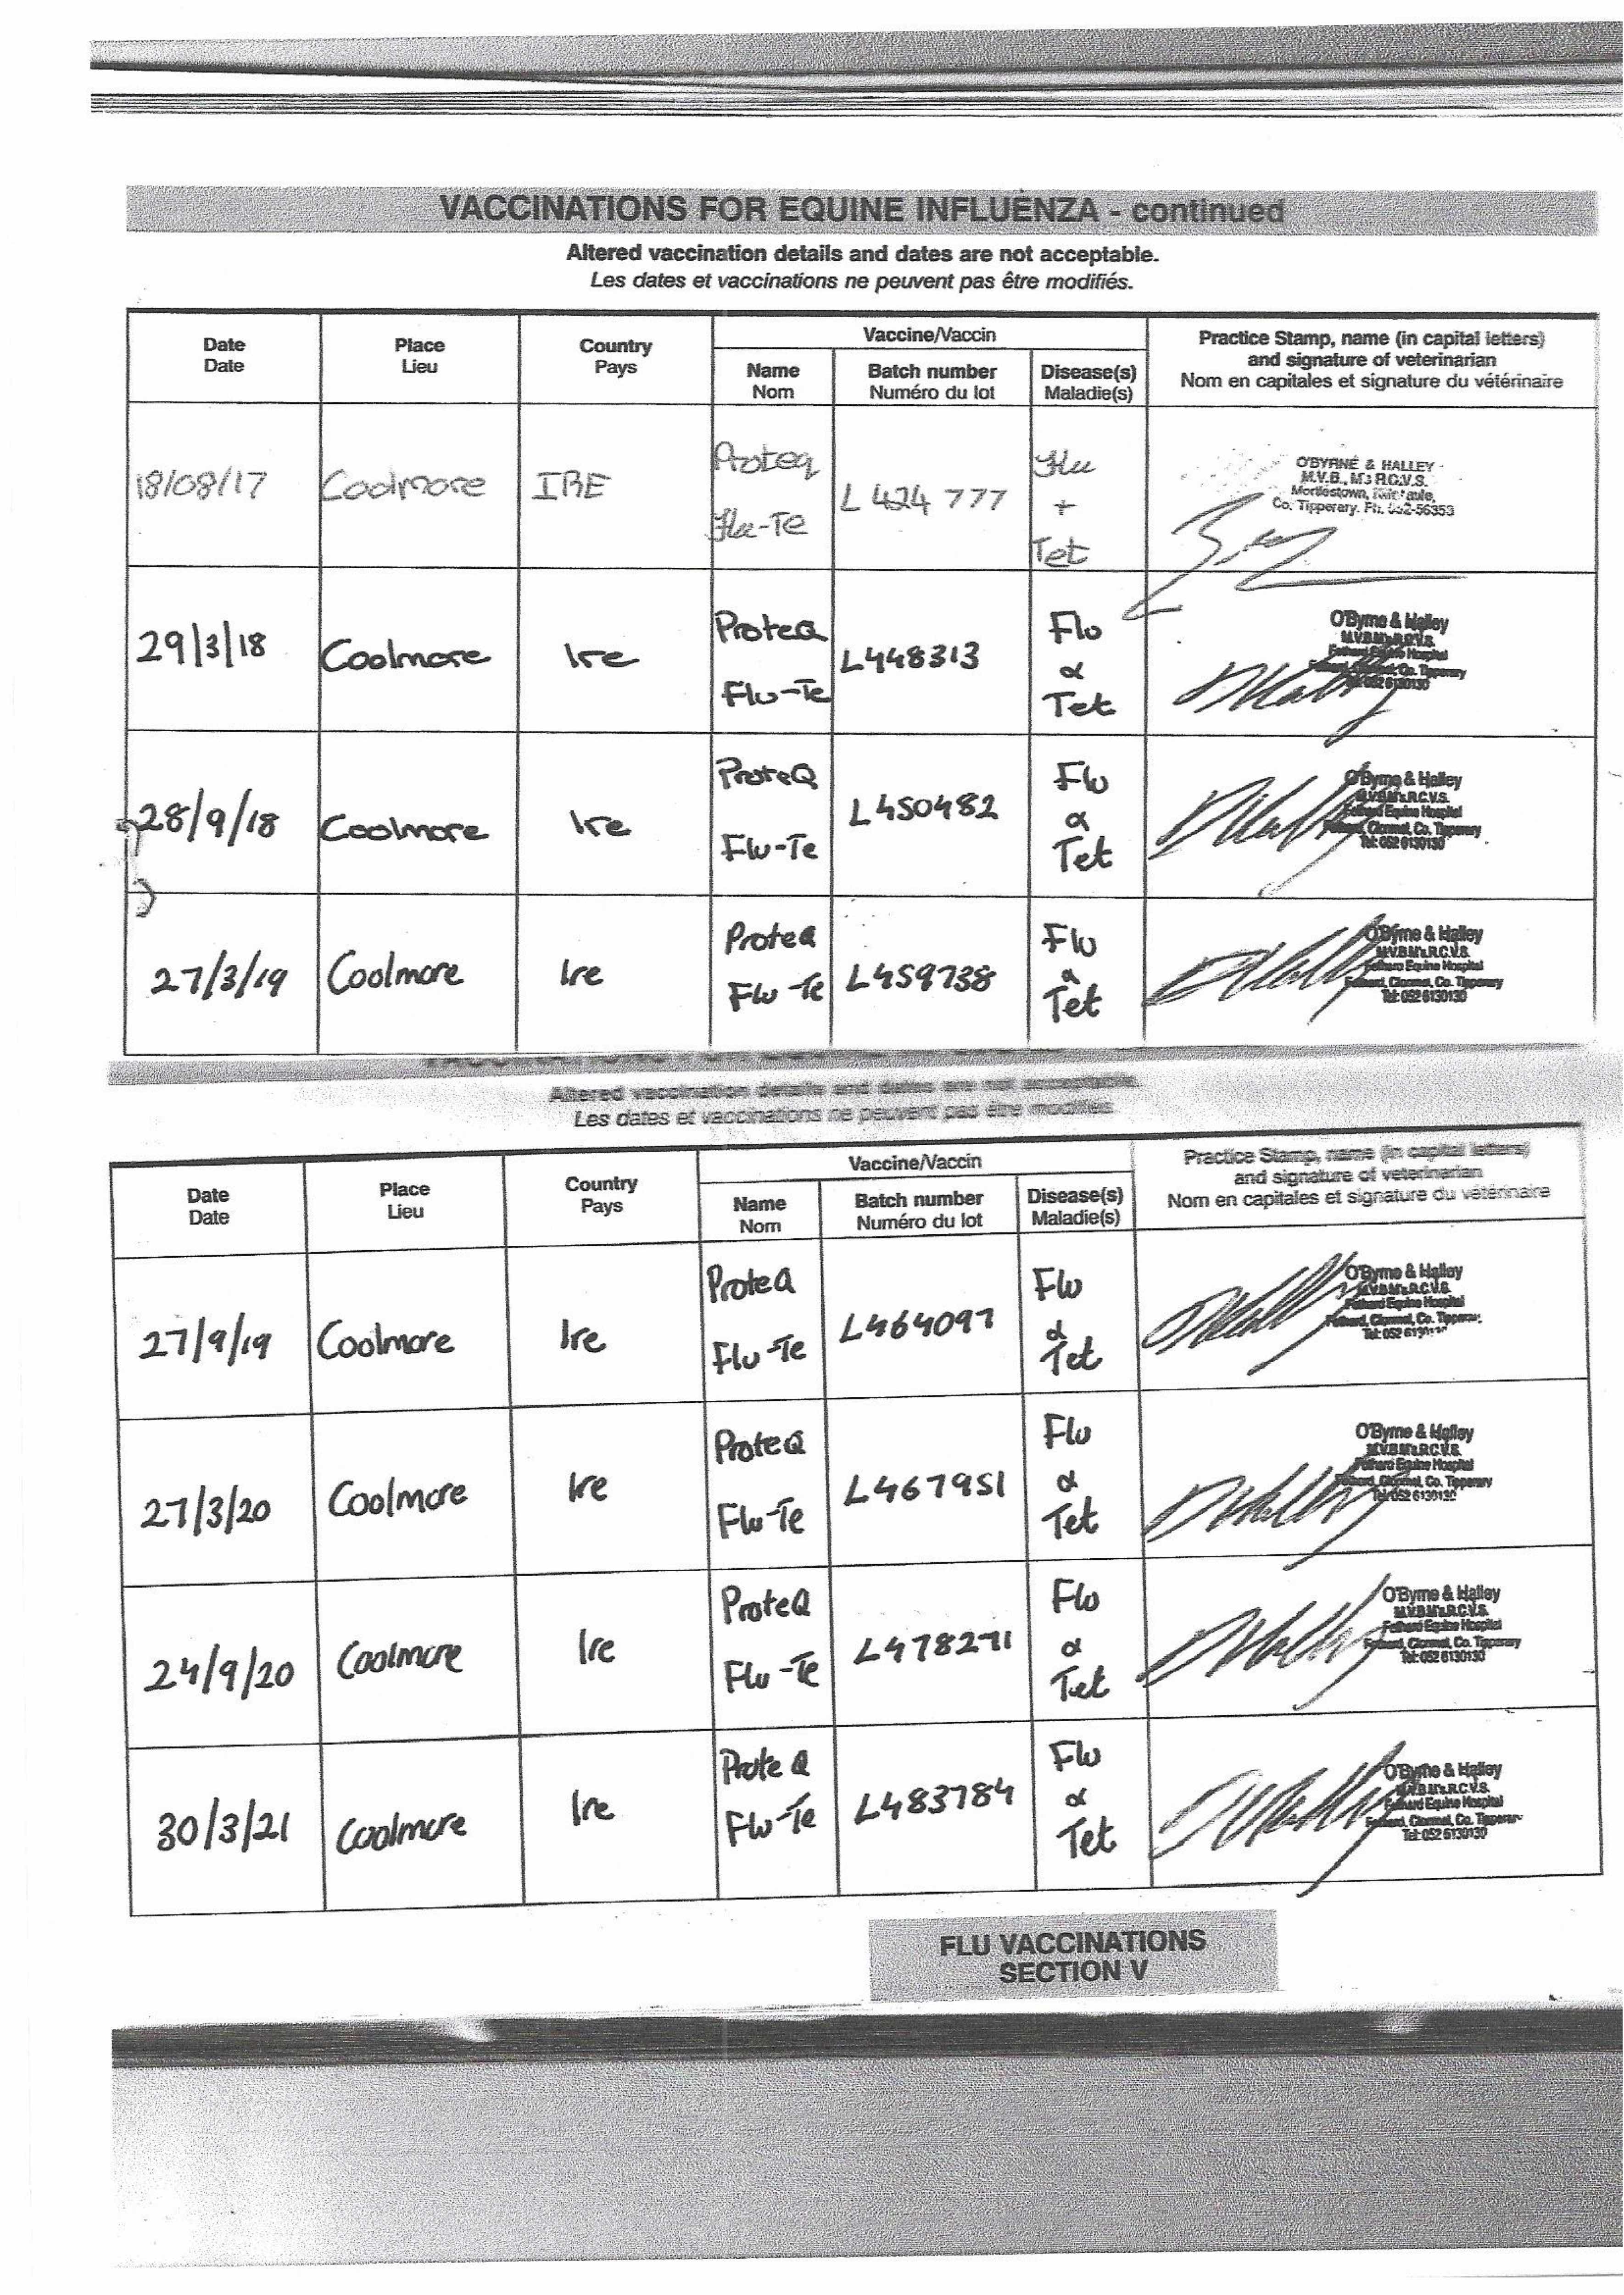 VACCINATIONS FOR EQUINE INFLUENZA - continued
Altered vaccination details and dates are not acceptable.
Les dates et vaccinations ne peuvent pas être modifiés.
Date Place Country Vaccine/Vaccin Practice Stamp, name (in capital letters)
Date Lieu Pays and signature of veterinarian
Name Batch number Disease(s) Nom en capitales et signature du vétérinaire
Nom Numéro du lot Maladie(s)
18/08/17 Coolmore IRE Proteq Flu-Te L424777 Flu + Tet
O'BYRNE & HALLEY
M.V.B., M's R.C.V.S.
Mortlestown,
Co. Tipperary. Ph. 052-56353
29/3/18 Coolmore Ire ProteQ Flu-Te L448313 Flu & Tet
O'Byrne & Halley
M.V.B M's R.C.V.S.
Fethard Equine Hospital
Co. Tipperary
052 6130130
28/9/18 Coolmore Ire ProteQ Flu-Te L450482 Flu & Tet
O'Byrne & Halley
M.V.B M's R.C.V.S.
Fethard Equine Hospital
Fethard, Clonmel, Co. Tipperary
Tel: 052 6130130
27/3/19 Coolmore Ire ProteQ Flu-Te L459738 Flu & Tet
O'Byrne & Halley
M.V.B M's R.C.V.S.
Fethard Equine Hospital
Fethard, Clonmel, Co. Tipperary
Tel: 052 6130130
Altered vaccination details and dates are not acceptable.
Les dates et vaccinations ne peuvent pas être modifiés
Date Place Country Vaccine/Vaccin Practice Stamp, name (in capital letters)
Date Lieu Pays and signature of veterinarian
Name Batch number Disease(s) Nom en capitales et signature du vétérinaire
Nom Numéro du lot Maladie(s)
27/9/19 Coolmore Ire ProteQ Flu-Te L464097 Flu & Tet
O'Byrne & Halley
M.V.B M's R.C.V.S.
Fethard Equine Hospital
Fethard, Clonmel, Co.
Tel: 052
27/3/20 Coolmore Ire ProteQ Flu-Te L467951 Flu & Tet
O'Byrne & Halley
M.V.B M's R.C.V.S.
Fethard Equine Hospital
Fethard, Clonmel, Co. Tipperary
Tel: 052 6130130
24/9/20 Coolmore Ire ProteQ Flu-Te L478271 Flu & Tet
O'Byrne & Halley
M.V.B M's R.C.V.S.
Fethard Equine Hospital
Fethard, Clonmel, Co. Tipperary
Tel: 052 6130130
30/3/21 Coolmore Ire ProteQ Flu-Te L483784 Flu & Tet
O'Byrne & Halley
M.V.B M's R.C.V.S.
Fethard Equine Hospital
Fethard, Clonmel, Co.
Tel: 052 6130130
FLU VACCINATIONS
SECTION V